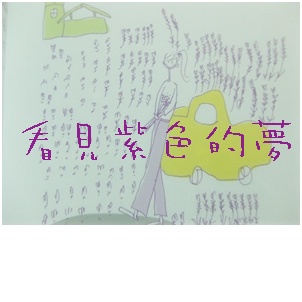 看見紫色的夢